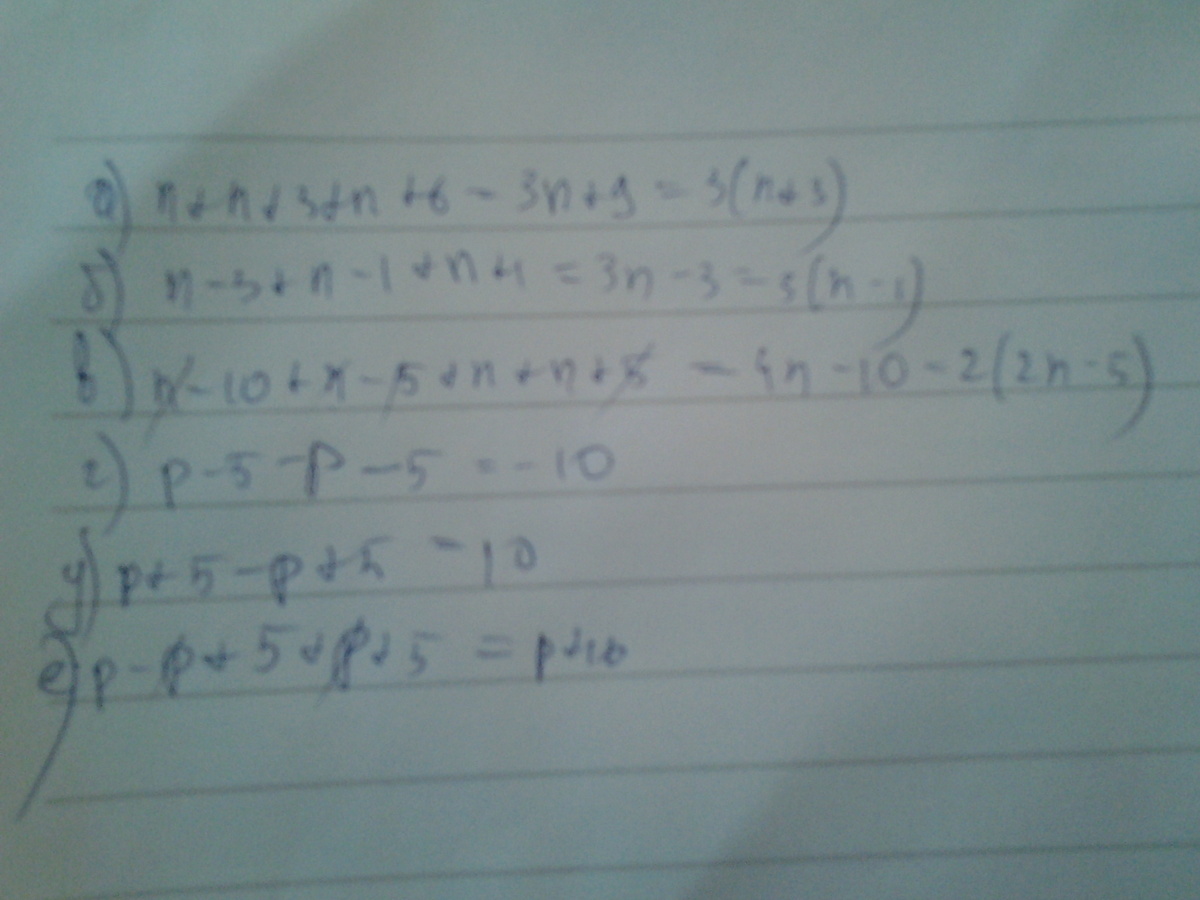 а) n+n+3+n+6 = 3n+9 = 3(n+3)
б) n-3+n-1+n+1 = 3n-3 = 3(n-1)
в) n-10+n-5+n+n+5 = 4n-10 = 2(2n-5)
г) p-5-p-5 = -10
д) p+5-p+5 = 10
е) p-p+5+p+5 = p+10